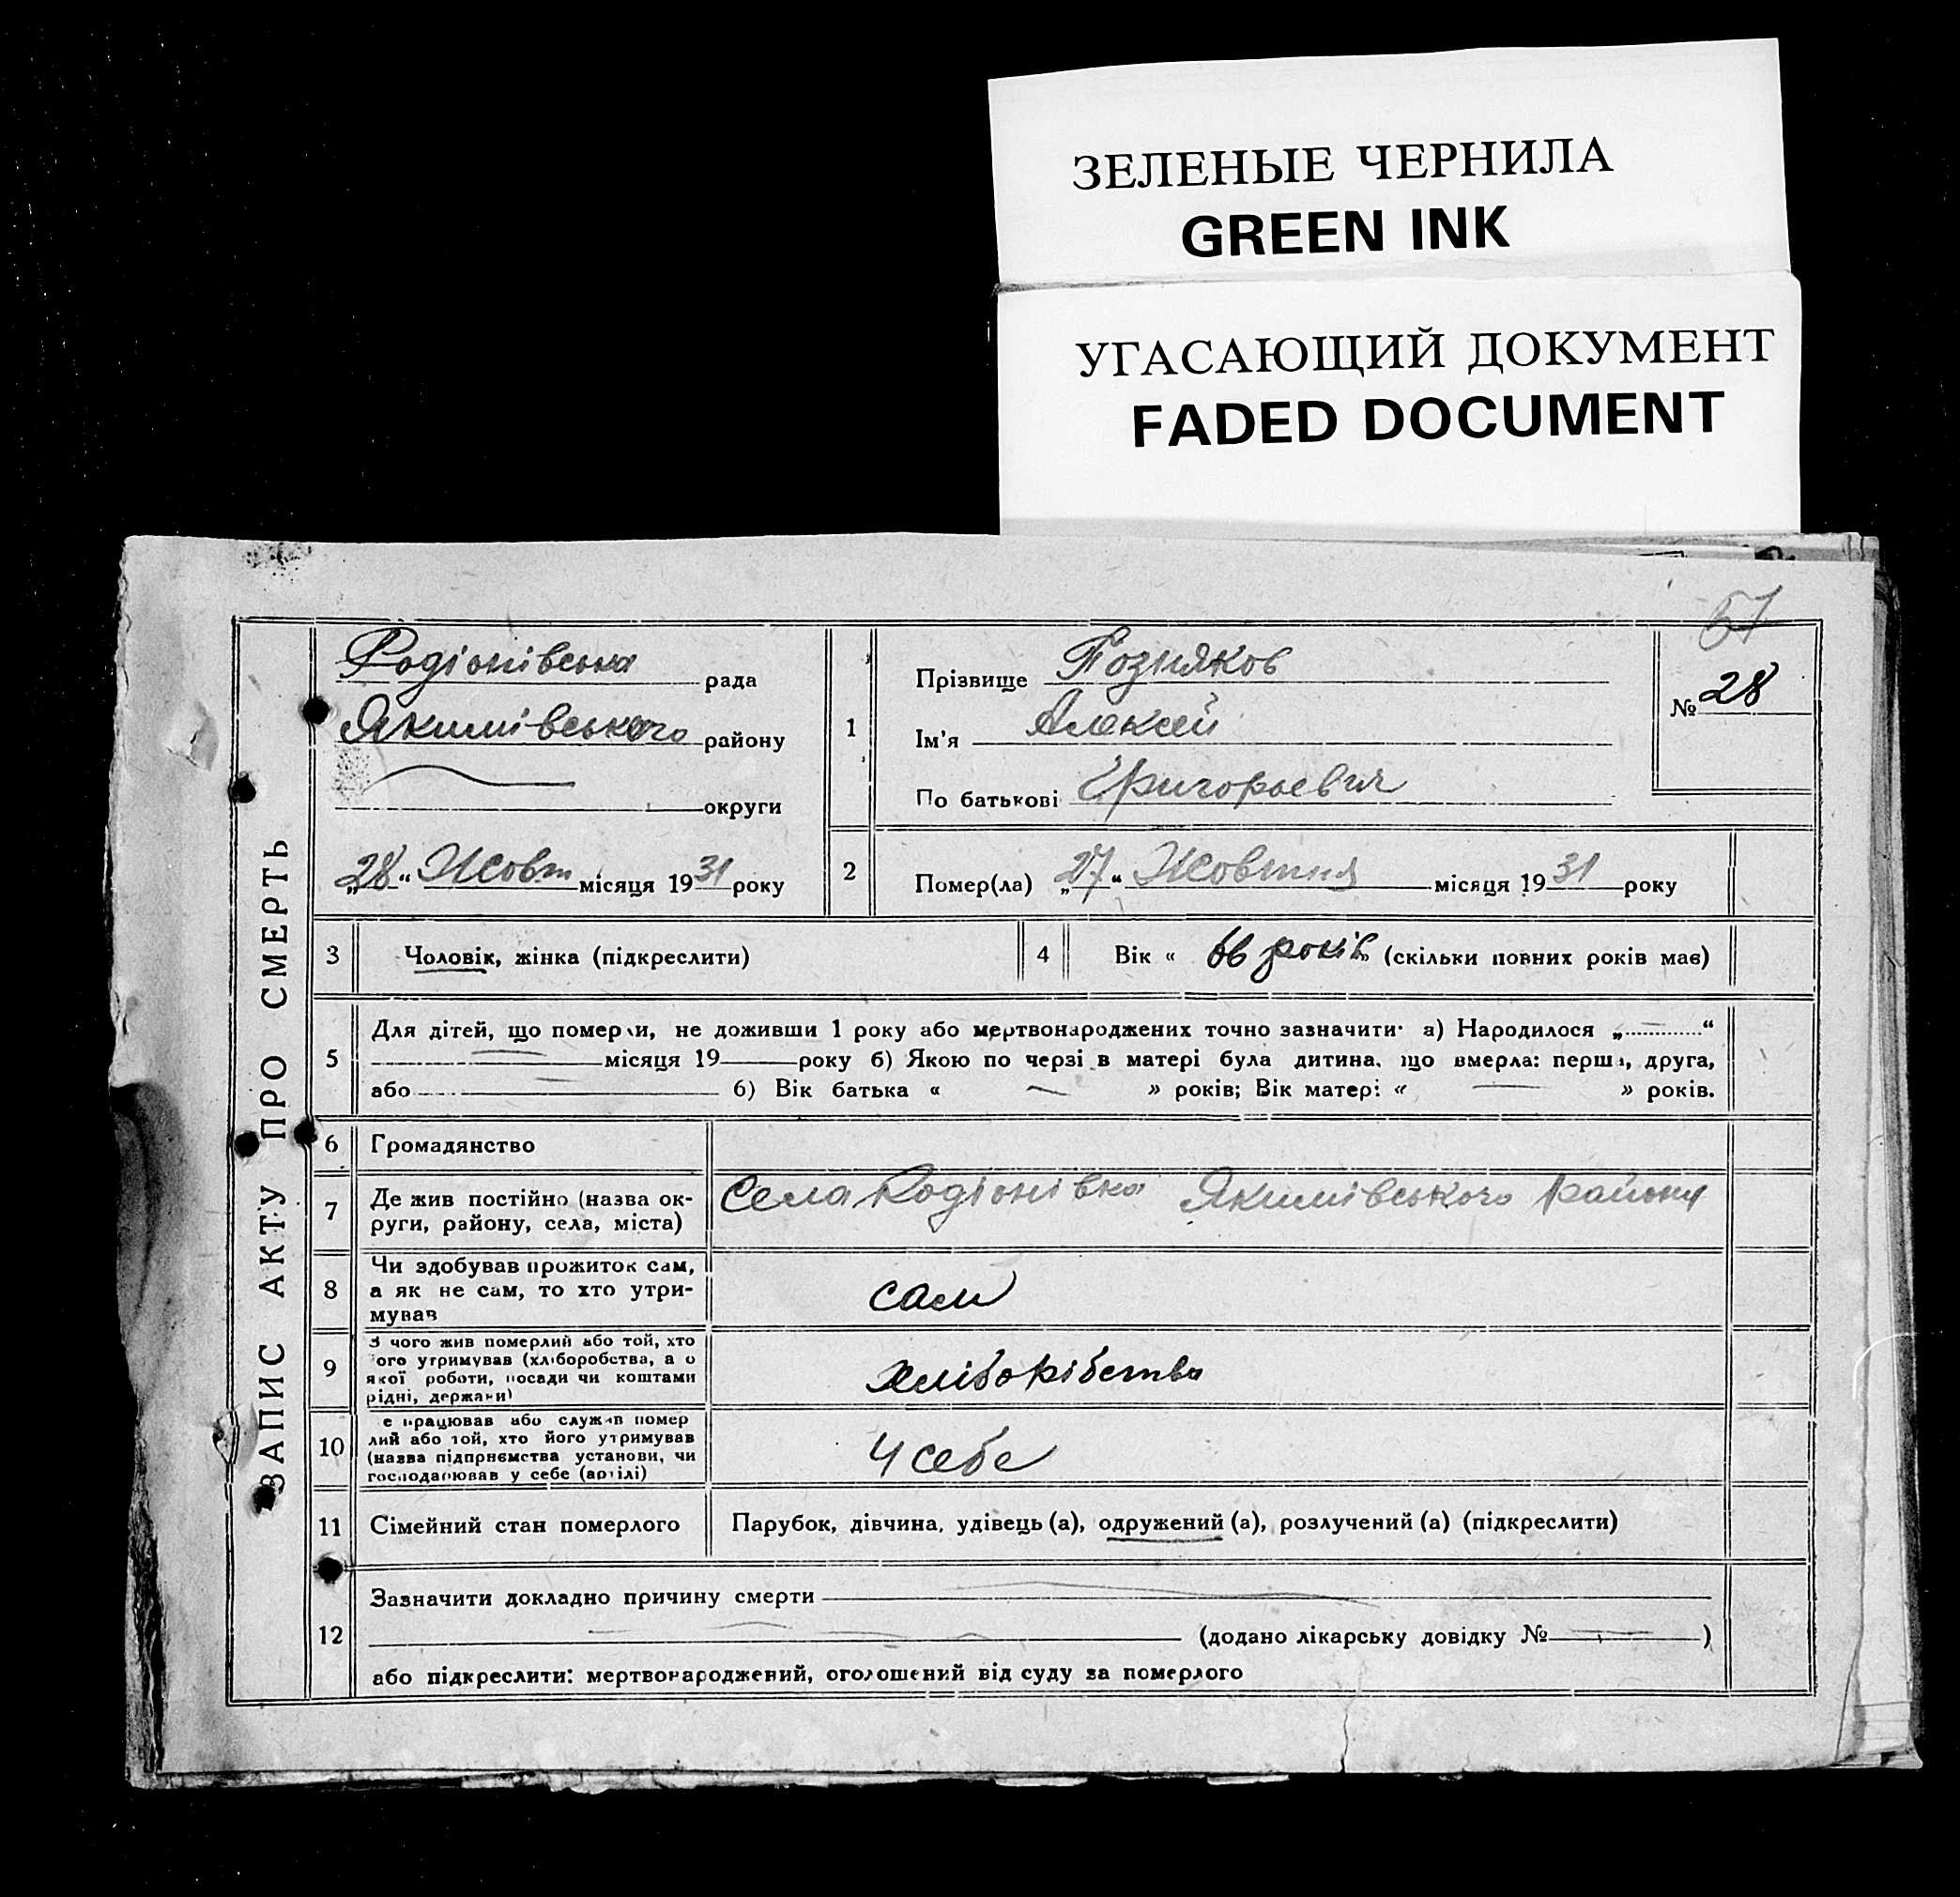 ЗЕЛЕНЫЕ ЧЕРНИЛА
GREEN INK
УГАСАЮЩИЙ ДОКУМЕНТ
FADED DOCUMENT
57
ЗАПИС АКТУ ПРО СМЕРТЬ
Родіонівська рада
Якимівського району
округи
„28“ Жовт місяця 1931 року
1
Прізвище Позняков
Ім'я Алексей
По батькові Григорьевич
№ 28
2
Помер(ла) „27“ Жовтня місяця 1931 року
3 Чоловік, жінка (підкреслити)
4 Вік « 66 років » (скільки повних років має)
5 Для дітей, що померли, не доживши 1 року або мертвонароджених точно зазначити· а) Народилося „ “
місяця 19 року б) Якою по черзі в матері була дитина, що вмерла: перша, друга,
або б) Вік батька « » років; Вік матері « » років.
6 Громадянство
7 Де жив постійно (назва ок-
руги, району, села, міста)
Села Родіонівка Якимівського району
8 Чи здобував прожиток сам,
а як не сам, то хто утри-
мував
сам
9 З чого жив померлий або той, хто
ого утримував (хліборобства, а о
якої роботи, посади чи коштами
рідні, держави)
хліборібства
10 е працював або служив помер
лий або той, хто його утримував
(назва підприємства установи, чи
господарював у себе (артілі)
У себе
11 Сімейний стан померлого
Парубок, дівчина, удівець (а), одружений (а), розлучений (а) (підкреслити)
12 Зазначити докладно причину смерти
(додано лікарську довідку № )
або підкреслити: мертвонароджений, оголошений від суду за померлого